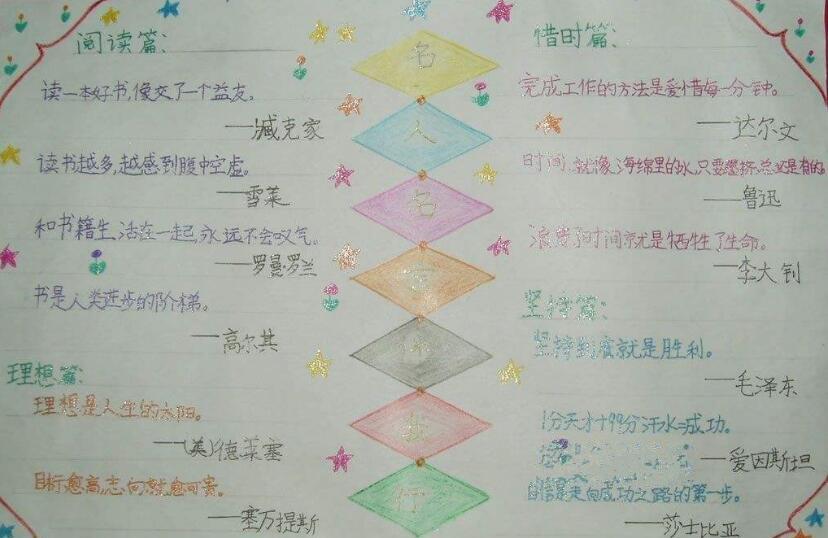 阅读篇:
读一本好书,像交了一个益友。
——臧克家
读书越多,越感到腹中空虚。
——雪莱
和书籍生活在一起,永远不会叹气。
——罗曼·罗兰
书是人类进步的阶梯。
——高尔基
理想篇:
理想是人生的太阳。
——(美)德莱塞
目标愈高,志向就愈可贵。
——塞万提斯
名
人
名
言
伴
行
惜时篇:
完成工作的方法是爱惜每一分钟。
——达尔文
时间,就像海绵里的水,只要愿挤,总还是有的。
——鲁迅
浪费了时间就是牺牲了生命。
——李大钊
坚持篇:
坚持到底就是胜利。
——毛泽东
1分天才+99分汗水=成功。
——爱因斯坦
自信是走向成功之路的第一步。
——莎士比亚